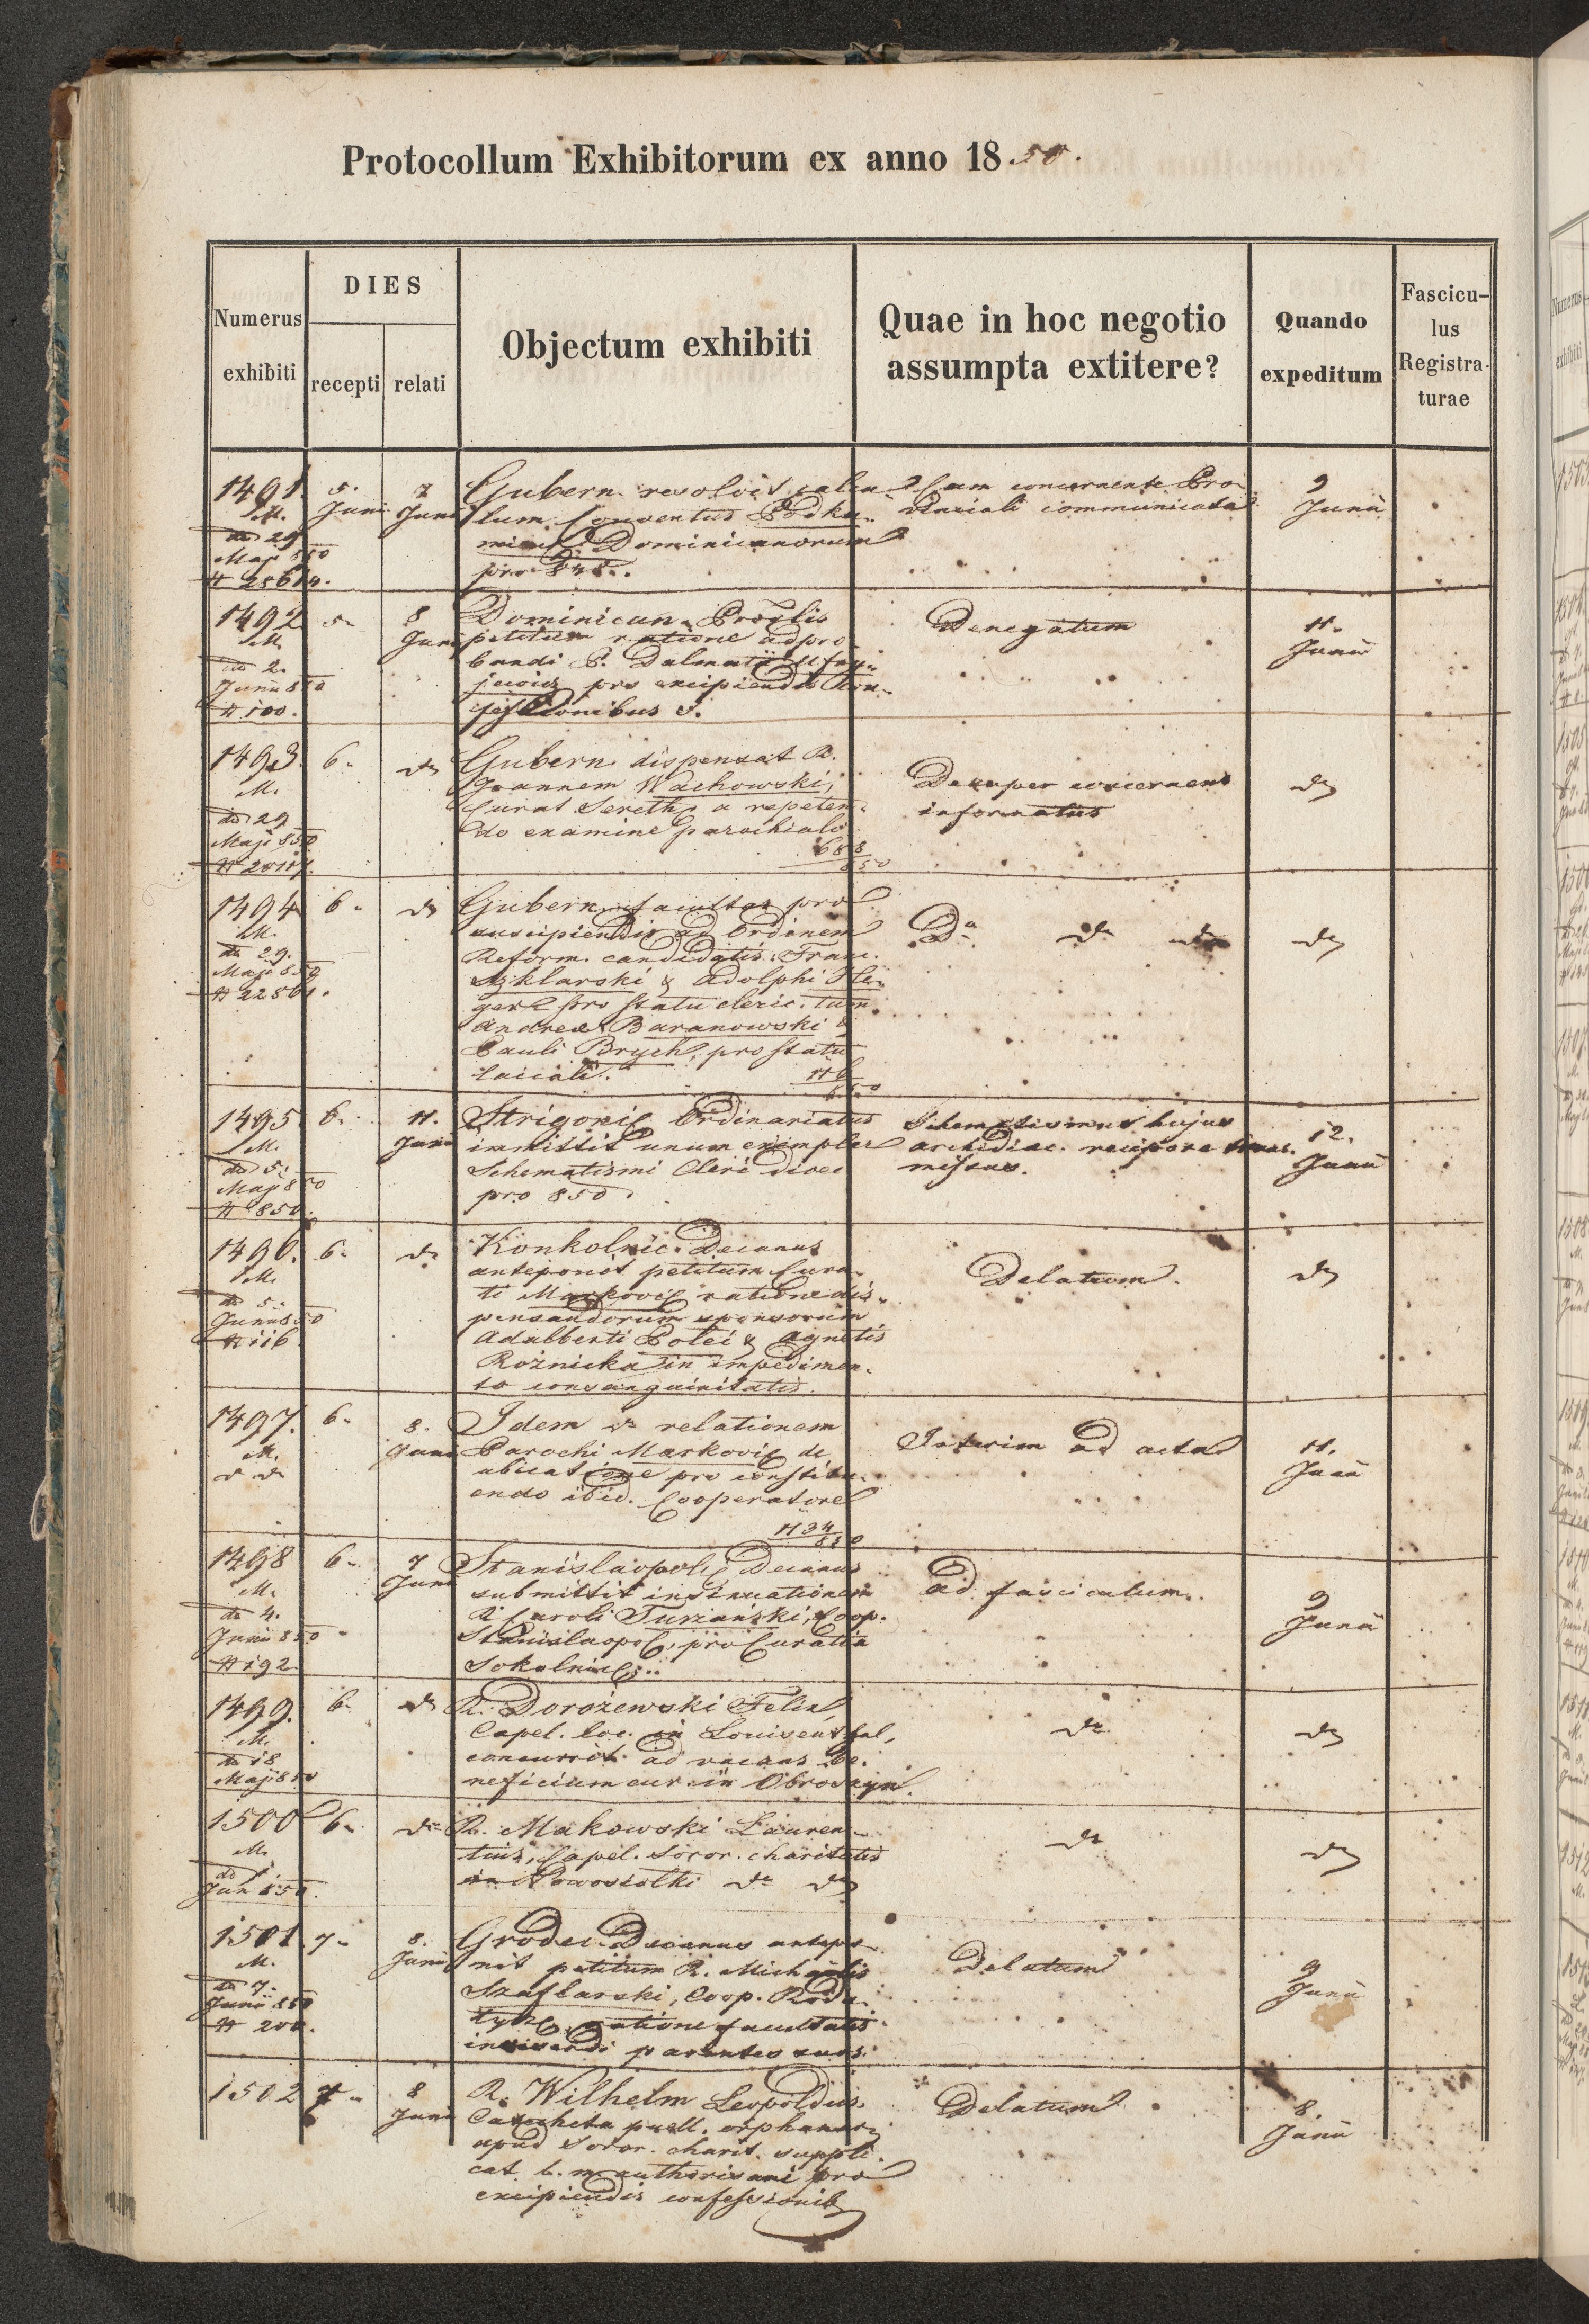 Protocollum Exhibitorum ex anno 1850.
Numerus exhibiti
DIES
recepti relati
Objectum exhibiti
Quae in hoc negotio
assumpta extitere?
Quando
expeditum
Fascicu-
lus
Registra-
turae
1491. 5. Juni 7 Juni
M.
dd 29
Maji 850
# 28614.
Gubern. resolvit
tum. Conventus Podka-
Dominicanorum
pro 848.
Cum concernente Pro-
vinciali communicata
9 Junii
1492 5. 8 Juni
M.
dd 2.
Junii 850
# 100.
Dominican. Prov̅lis
petitum ratione adpro-
bandi P. Dalmatii
pro excipiendis Con-
fessionibus
Denegatum
11. Junii
1493. 6. do
M.
dd 29
Maji 850
Gubern. dispensat R.
Joannem Wachowski,
Curat Sereth a repeten-
do examine parochiali
688
850
Desuper concernens
informatus
do
1494 6. do
M.
dd 29.
Maji 850
# 22861.
Gubern. facultas pro
suscipiendis ad Ordinem
Reform. candidatis: Franc.
Szklarski & Adolphi He-
ger pro statu cleric. tum.
Andreae Baranowski &
Pauli Brych, pro statu
laicali.
116
850
Do do do
do
1495 6. 11. Juni
M.
dd 5.
Maji 850
# 850.
Strigonie Ordinariatus
inmittit unum exemplar
Schematismi Cleri dioec
pro 850
Schematismus hujus
archidioec. recipore trans-
missus.
12. Junii
1496. 6. do
M.
dd 5.
Junii 850
# 116
Konkolnic. Decanus
anteponit petitum Cura-
ti Markovic ratione dis-
pensandorum sponsorum
Adalberti Polei & Agnetis
Rożnicka in impedimen-
to consanguinitatis.
Delatum.
do
1497. 6. 8. Juni
M.
do do
Idem do relationem
Parochi Markovic de
ubicatione pro constitu-
endo ibid. Cooperatore
1134
850
Interim ad acta
11. Junii
1498 6. 7 Juni
M.
dd 4.
Junii 850
# 192.
Stanislaopoli Decanus
submittit insinuationem
R Caroli Turzański, Coop.
Stanislaopol, pro Curatia
Sokolnic
ad fasciculum.
9 Junii
1499. 6. do
M.
dd 18
Maji 850
R. Dorożewski Felix,
Capel. loc. in Louisenthal,
concurrit ad vacans be-
neficium cur. in Obroszyn.
do
do
1500 6. do
M.
dd 1.
Jun 850.
R. Makowski Lauren-
tius, Capel. Soror. charitatis
in Nowosiolki do do
do
do
1501 7. 8. Junii
M.
dd 7.
Junii 850
# 200.
Grodec. Decanus antepo-
nit petitum R. Michaelis
Szaflarski, Coop. Roda-
tyc, ratione facultatis
invisendi parentes suos.
Delatum
9 Junii
1502 7. 8 Juni
R. Wilhelm Leopoldus
Catecheta puell. orphanar.
apud Soror. charit. suppli-
cat h. m. authorisari pro
excipiendis confessionib
Delatum
8. Junii